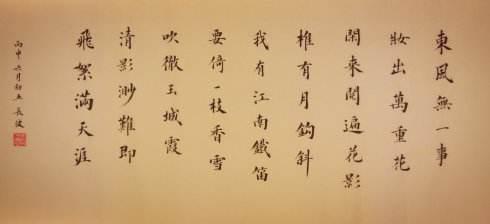 東風無一事
妝出萬重花
閑來閱遍花影
惟有月鉤斜
我有江南鐵笛
要倚一枝香雪
吹徹玉城霞
清影渺難即
飛絮滿天涯
丙申六月初五 長